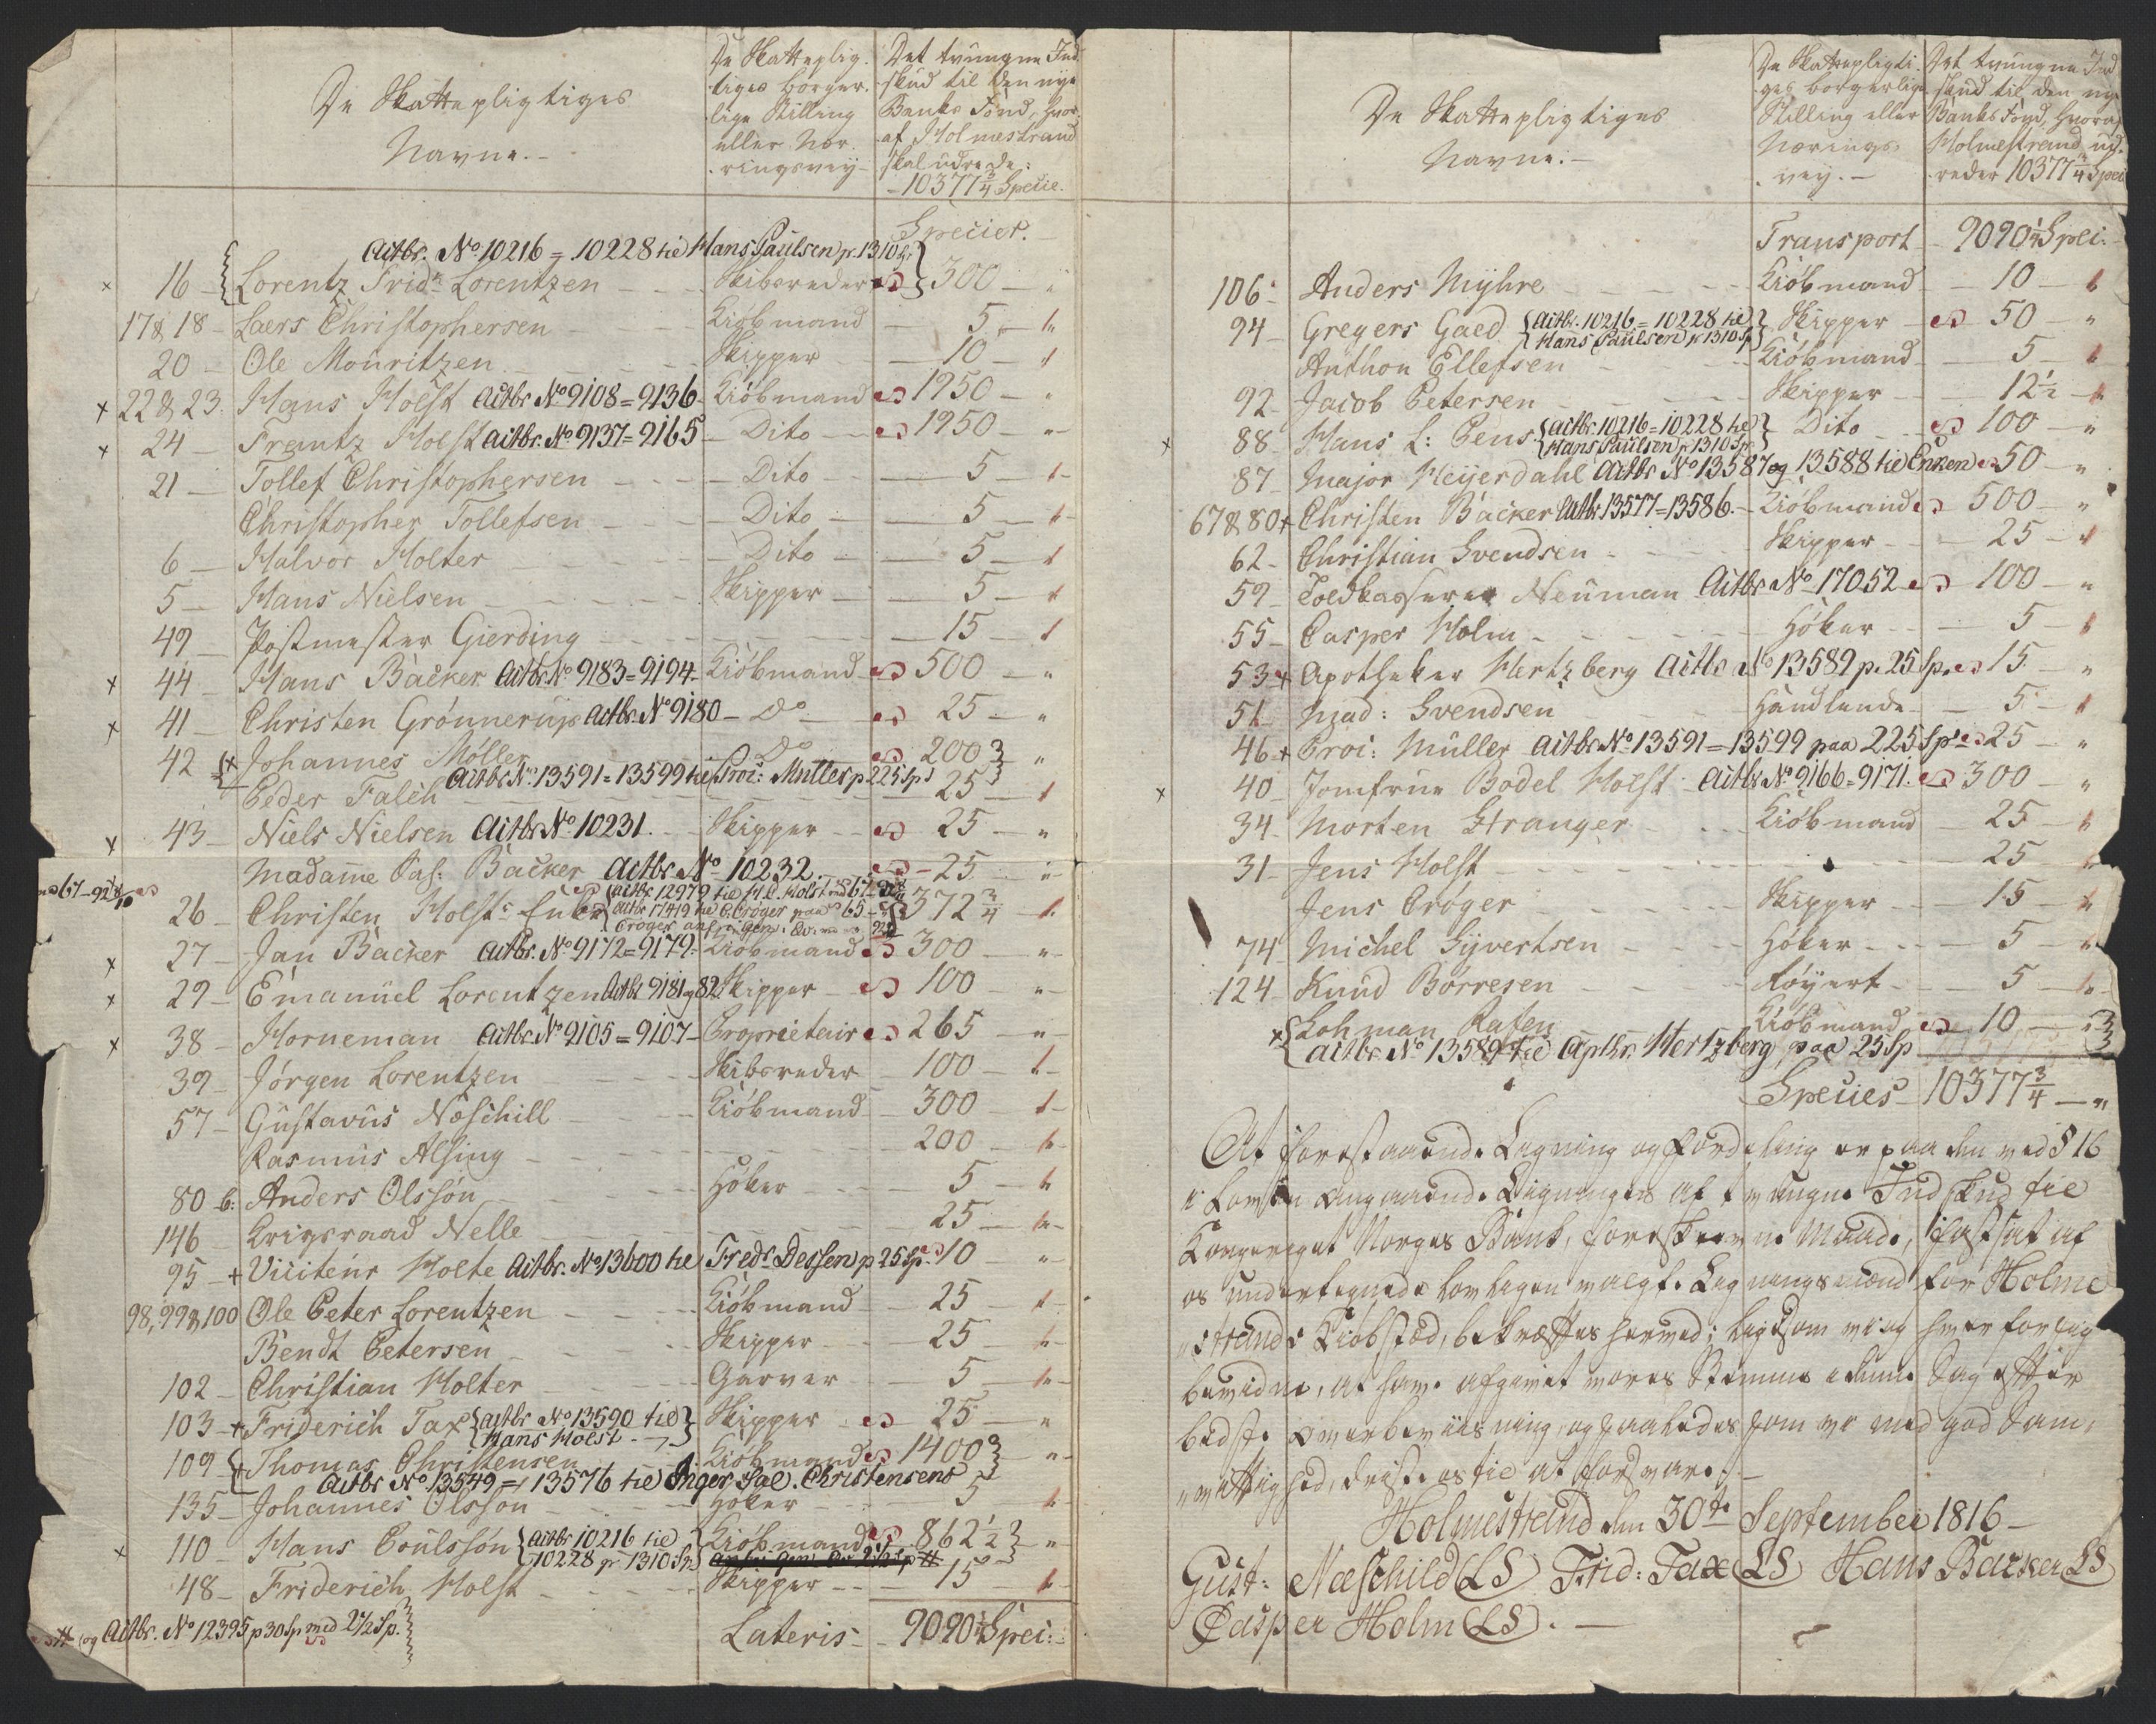 De Skattepligtiges
Navne.-
De Skatteplig-
tiges borger-
lige Stilling
eller Næ-
ringsvey-
Det tvungne Ind
skud til den nye
Banks Fond, hvor-
af Holmestrand
skal udrede:
-10377¾ Specie.
Specier.
Actbr. No 10216=10228 til Hans Paulsen p. 1310 Sp
16 - Lorentz Fridr. Lorentzen - - Skibsreder 300 - "
17 & 18 - Laers Christophersen - - Kiöbmand - 5 -
20 - Ole Mouritzen - - Skipper - 10 -
x 22 & 23. Hans Holst Actbr No 9108=9136- Kiöbmand 1250 - "
x 24 - Frantz Holst Actbr. No. 9137=9165 - Dito - 1250 - "
21 - Tollef Christophersen - - Dito - 5 -
Christopher Tollefsen - - Dito - 5 -
6 - Halvor Holter - - Dito - 5 -
5 - Hans Nielsen - - Skipper - 5 -
49 - Postmester Gierding - - 15 -
x 44 - Hans Backer Actbr. No 9183=9194- Kiöbmand 500 - "
x 41 - Christen Grönnerup Actbr. No 9180 - Do - 25 - "
42 x Johannes Möller - Do - 200 "
Actbr No. 13591=13599 til Proc: Müller p 225 Sp
Peder Falch - - 25 -
x 43 - Niels Nielsen Actbr No. 10231. - Skipper - 25 - "
Madame Sas: Backer Actbr. No 10232. - 25 - "
67-92
Actbr 12979 til H. C. Holst 67-
26 - Christen Holsts Enke Actbr 17419 til C. Cröger paa 65 - 372¾ -
Cröger
x 27 - Jan Backer Actbr. No. 9172=9179- Kiöbmand 300 - "
x 29 - Emanuel Lorentzen Actbr 9181 og 82. Skipper - 100 - "
x 38 - Horneman Actbr. No 9105=9107- Proprietair 265 - "
39 - Jörgen Lorentzen - - Skibsreder - 100 -
57 - Gustavus Næschill - - Kiöbmand - 300 -
Rasmus Alsing - - 200 -
80 b: Anders Olssön - - Höker - 5 -
146 Krigsraad Nelle - - 25 -
95 - + Visiteur Holte Actbr. No. 13600 til Fredr. Dessen p 25 Sp. 10 - "
98, 99 & 100 Ole Peter Lorentzen - - Kiöbmand - 25 -
Bendt Petersen - - Skipper - 25 -
102 - Christian Holter - - Garver - 5 -
103 - + Friderich Tax Actbr No 13590 til Skipper - 25 - "
Hans Holst
109 + Thomas Christensen - Kiöbmand 1400 "
Actbr No. 13549=13576 til Inger Sal. Christensens
135 - Johannes Olsson - - Höker - 5 -
x 110 - Hans Poulssön Actbr 10216 til Kiöbmand 862½ - "
10228 pr 1310 Sp
48 - Friderich Holst - - Skipper - 15 -
# og Actbr. No 12395 p 30 Sp med 2½ Sp.
Lateris - 9090½ Speci:
De Skattepligtiges
Navne.-
De Skattepligti-
ges borgerlige
Stilling eller
Nærings-
vey.-
Det tvungne Ind
skud til den nye
Banks Fond, hvoraf
Holmestrand ud-
reder 10377¾ Speci
Transport - 9090½ Speci:
106 - Anders Myhre - - Kiöbmand - 10 -
94 - Gregers Gaed Actbr. 10216=10228 til Skipper - 50 - "
Hans Paulsen p 1310 Sp
Anthon Ellefsen - - Kiöbmand - 5 -
92 - Jacob Petersen - - Skipper - 12½ -
x 88 - Hans L: Pens Actbr. 10216=10228 til Dito 100 - "
Hans Paulsen p 1310 Sp
87 - Major Heijerdahl Actbr No 13587 og 13588 til Enken 50 - "
67 & 80 + Christen Backer Actbr 13577=13586.- Kiöbmand 500 - "
62 - Christian Svendsen - - Skipper - 25 -
59 - Toldkasserer Neuman Actbr No 17052 100 - "
55 - Casper Holm - - Höker - 5 -
53 + Apotheker Hertzberg Actbr No 13589 p. 25 Sp. 15 - "
51 - Mad: Svendsen - Handlende - 5 -
46 + Proc: Müller Actbr No 13591=13599 paa 225 Sp 25 - "
x 40 - Jomfrue Bodel Holst - Actbr No. 9166=9171. 300 - "
34 - Morten Stranger - - Kiöbmand - 25 -
31 - Jens Holst - - 25 -
Jens Cröger - - Skipper - 15 -
74 - Michel Syvertsen - - Höker - 5 -
124 - Knud Börresen - - Föyert - 5 -
x Lohman Rafen Kiöbmand 10 - "
Actbr. No 13589 til Apthr. Hertzberg paa 25 Sp
Species - 10377¾ - "
At forestaaende Ligning og Fordeling er paa den ved § 16
i Loven angaaende Ligningen af tvungne Indskud til
Kongeriget Norges Bank, foreskrevne Maade, fastsat af
os undertegnede lovligen valgte Ligningsmænd for Holme-
strands Kiöbstæd, bekræftes herved; ligesom vi og hver for sig
bevidne, at have afgivet vores Stemme i denne Sag efter
bedste Overbeviisning, og saaledes som vi med god Sam-
vittighed, driste os til at forsvare.-
Holmestrand den 30te September 1816-
Gust: Næschild (LS) Frid: Tax (LS) Hans Backer (LS)
Casper Holm (LS).-